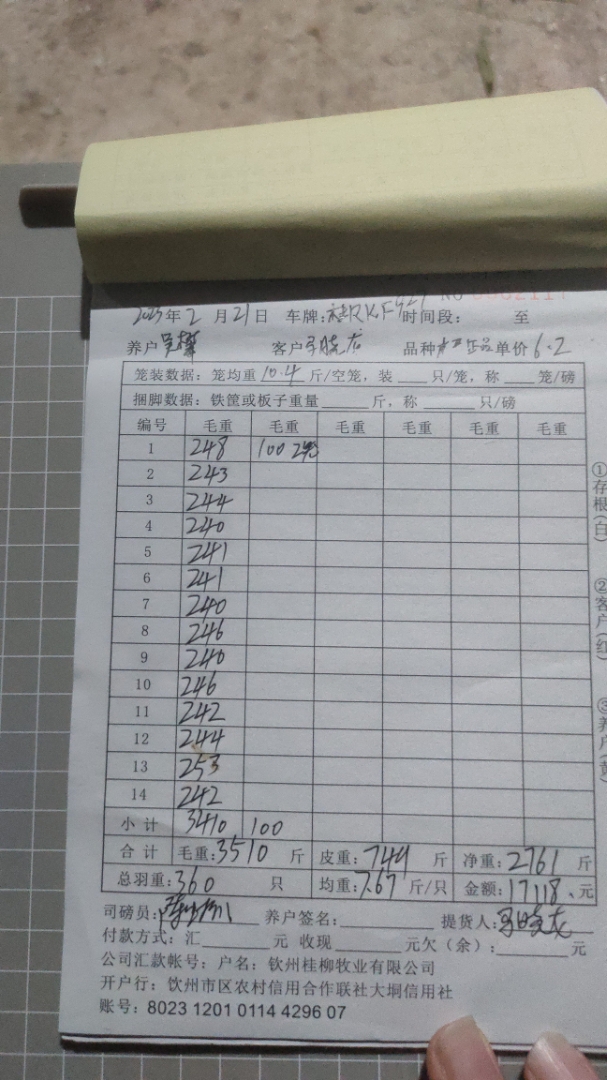 2023年2月21日 车牌:桂RKF927 时间段: 至
养户 客户 晓龙 品种 单价6.2
笼装数据:笼均重10.4斤/空笼,装 只/笼,称 笼/磅
捆脚数据:铁筐或板子重量 斤,称 只/磅
编号 毛重 毛重 毛重 毛重 毛重
1 248 100 2笼
2 243
3 244
4 240
5 241
6 241
7 240
8 246
9 240
10 246
11 242
12 244
13 253
14 242
小计 3410 100
合计 毛重:3510斤 皮重:749斤 净重:2761斤
总羽重:360只 均重:7.67斤/只 金额:17118.元
司磅员: 养户签名: 提货人: 晓龙
付款方式:汇 元 收现 元欠(余): 元
公司汇款帐号:户名:钦州桂柳牧业有限公司
开户行:钦州市区农村信用合作联社大垌信用社
账号:8023 1201 0114 4296 07
①存根(白)
②客户(红)
③养户(黄)